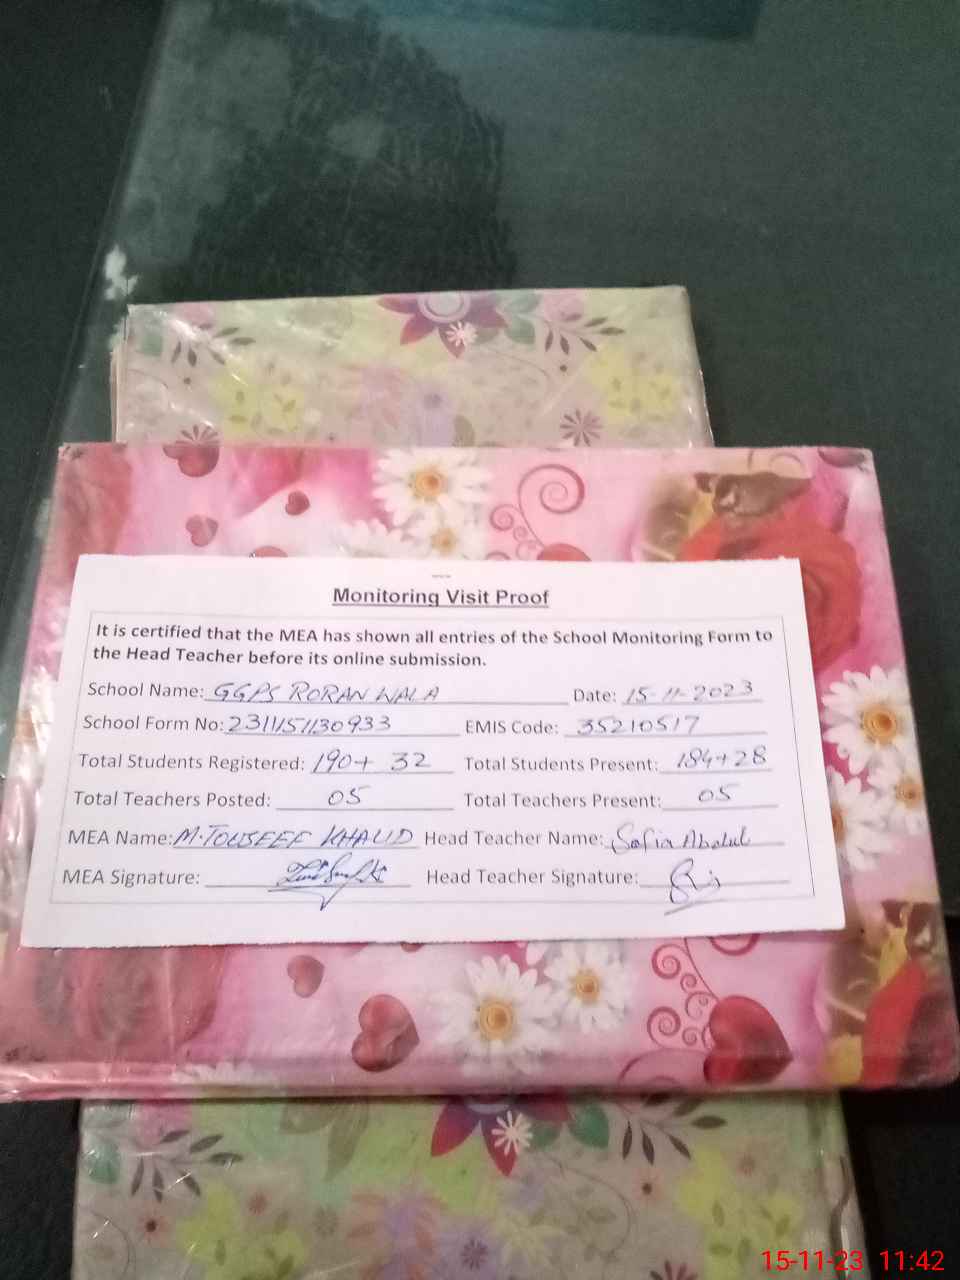 Monitoring Visit Proof
It is certified that the MEA has shown all entries of the School Monitoring Form to
the Head Teacher before its online submission.
School Name: GGPS RORAN WALA Date: 15-11-2023
School Form No: 2311151130933 EMIS Code: 35210517
Total Students Registered: 190+ 32 Total Students Present: 184+28
Total Teachers Posted: 05 Total Teachers Present: 05
MEA Name: M.TOUSEEF KHALID Head Teacher Name: Safia
MEA Signature: Head Teacher Signature:
15-11-23 11:42